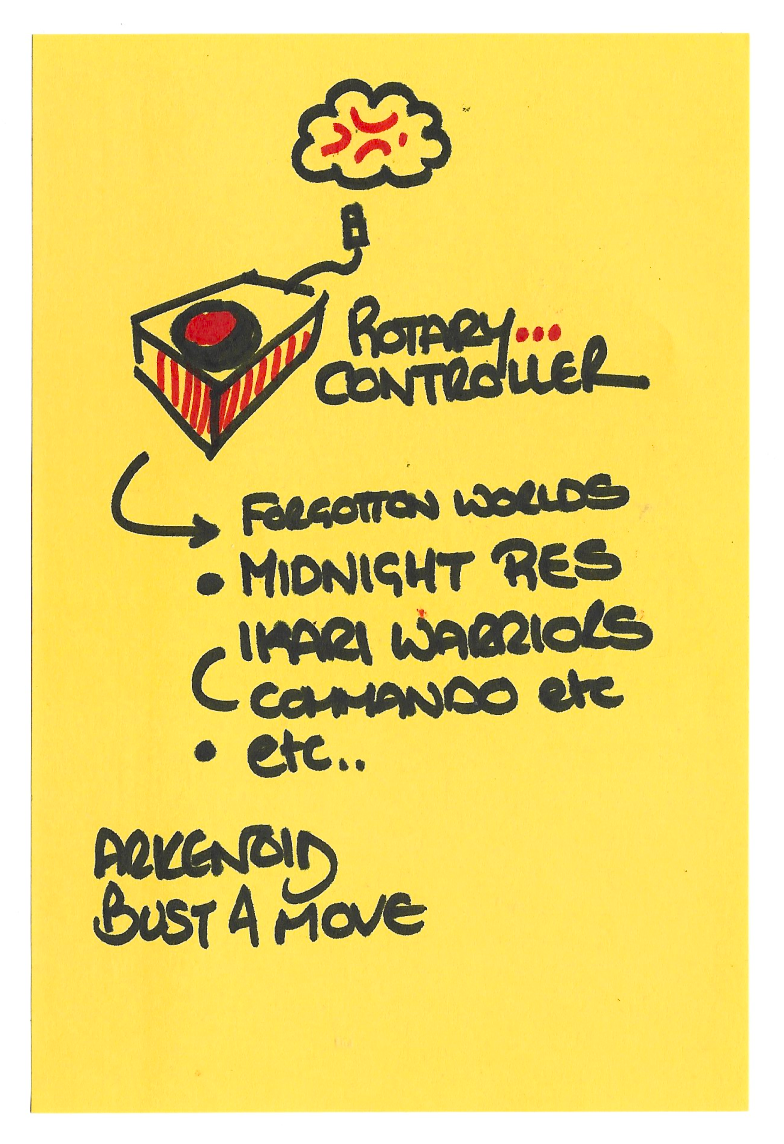 ROTARY...
CONTROLLER
FORGOTTON WORLDS
• MIDNIGHT RES
IKARI WARRIORS
COMMANDO etc
• etc..
ARKENOID
BUST A MOVE